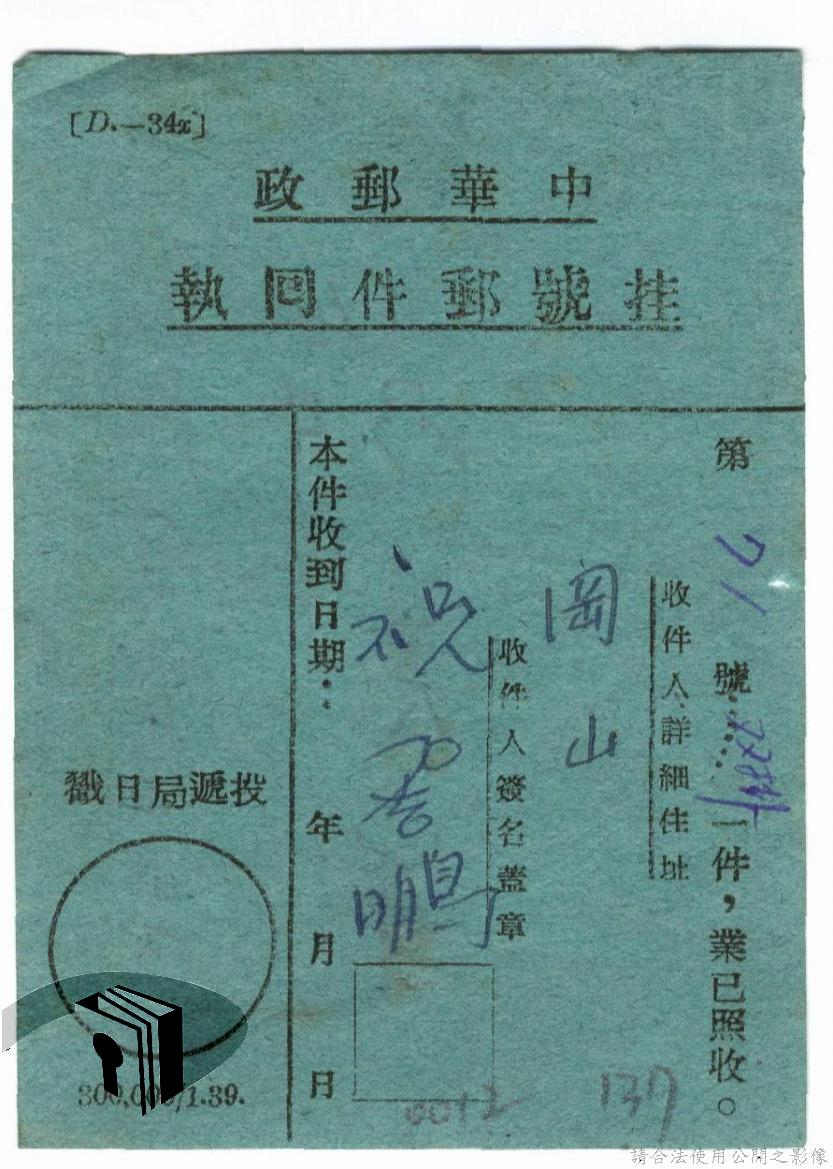 [D.—34x]
中華郵政
挂號郵件回執
第 71 號……一件，業已照收。
收件人詳細住址
岡山
收件人簽名蓋章
祝
鵬
本件收到日期：　年　月　日
投遞局日戳
300,000/1.39.
0012
137
請合法使用公開之影像